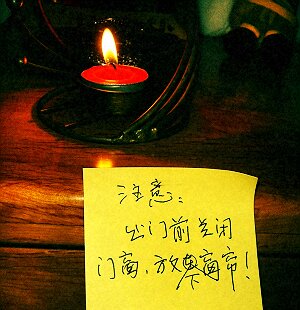 注意：
出门前关闭
门窗、放下窗帘！